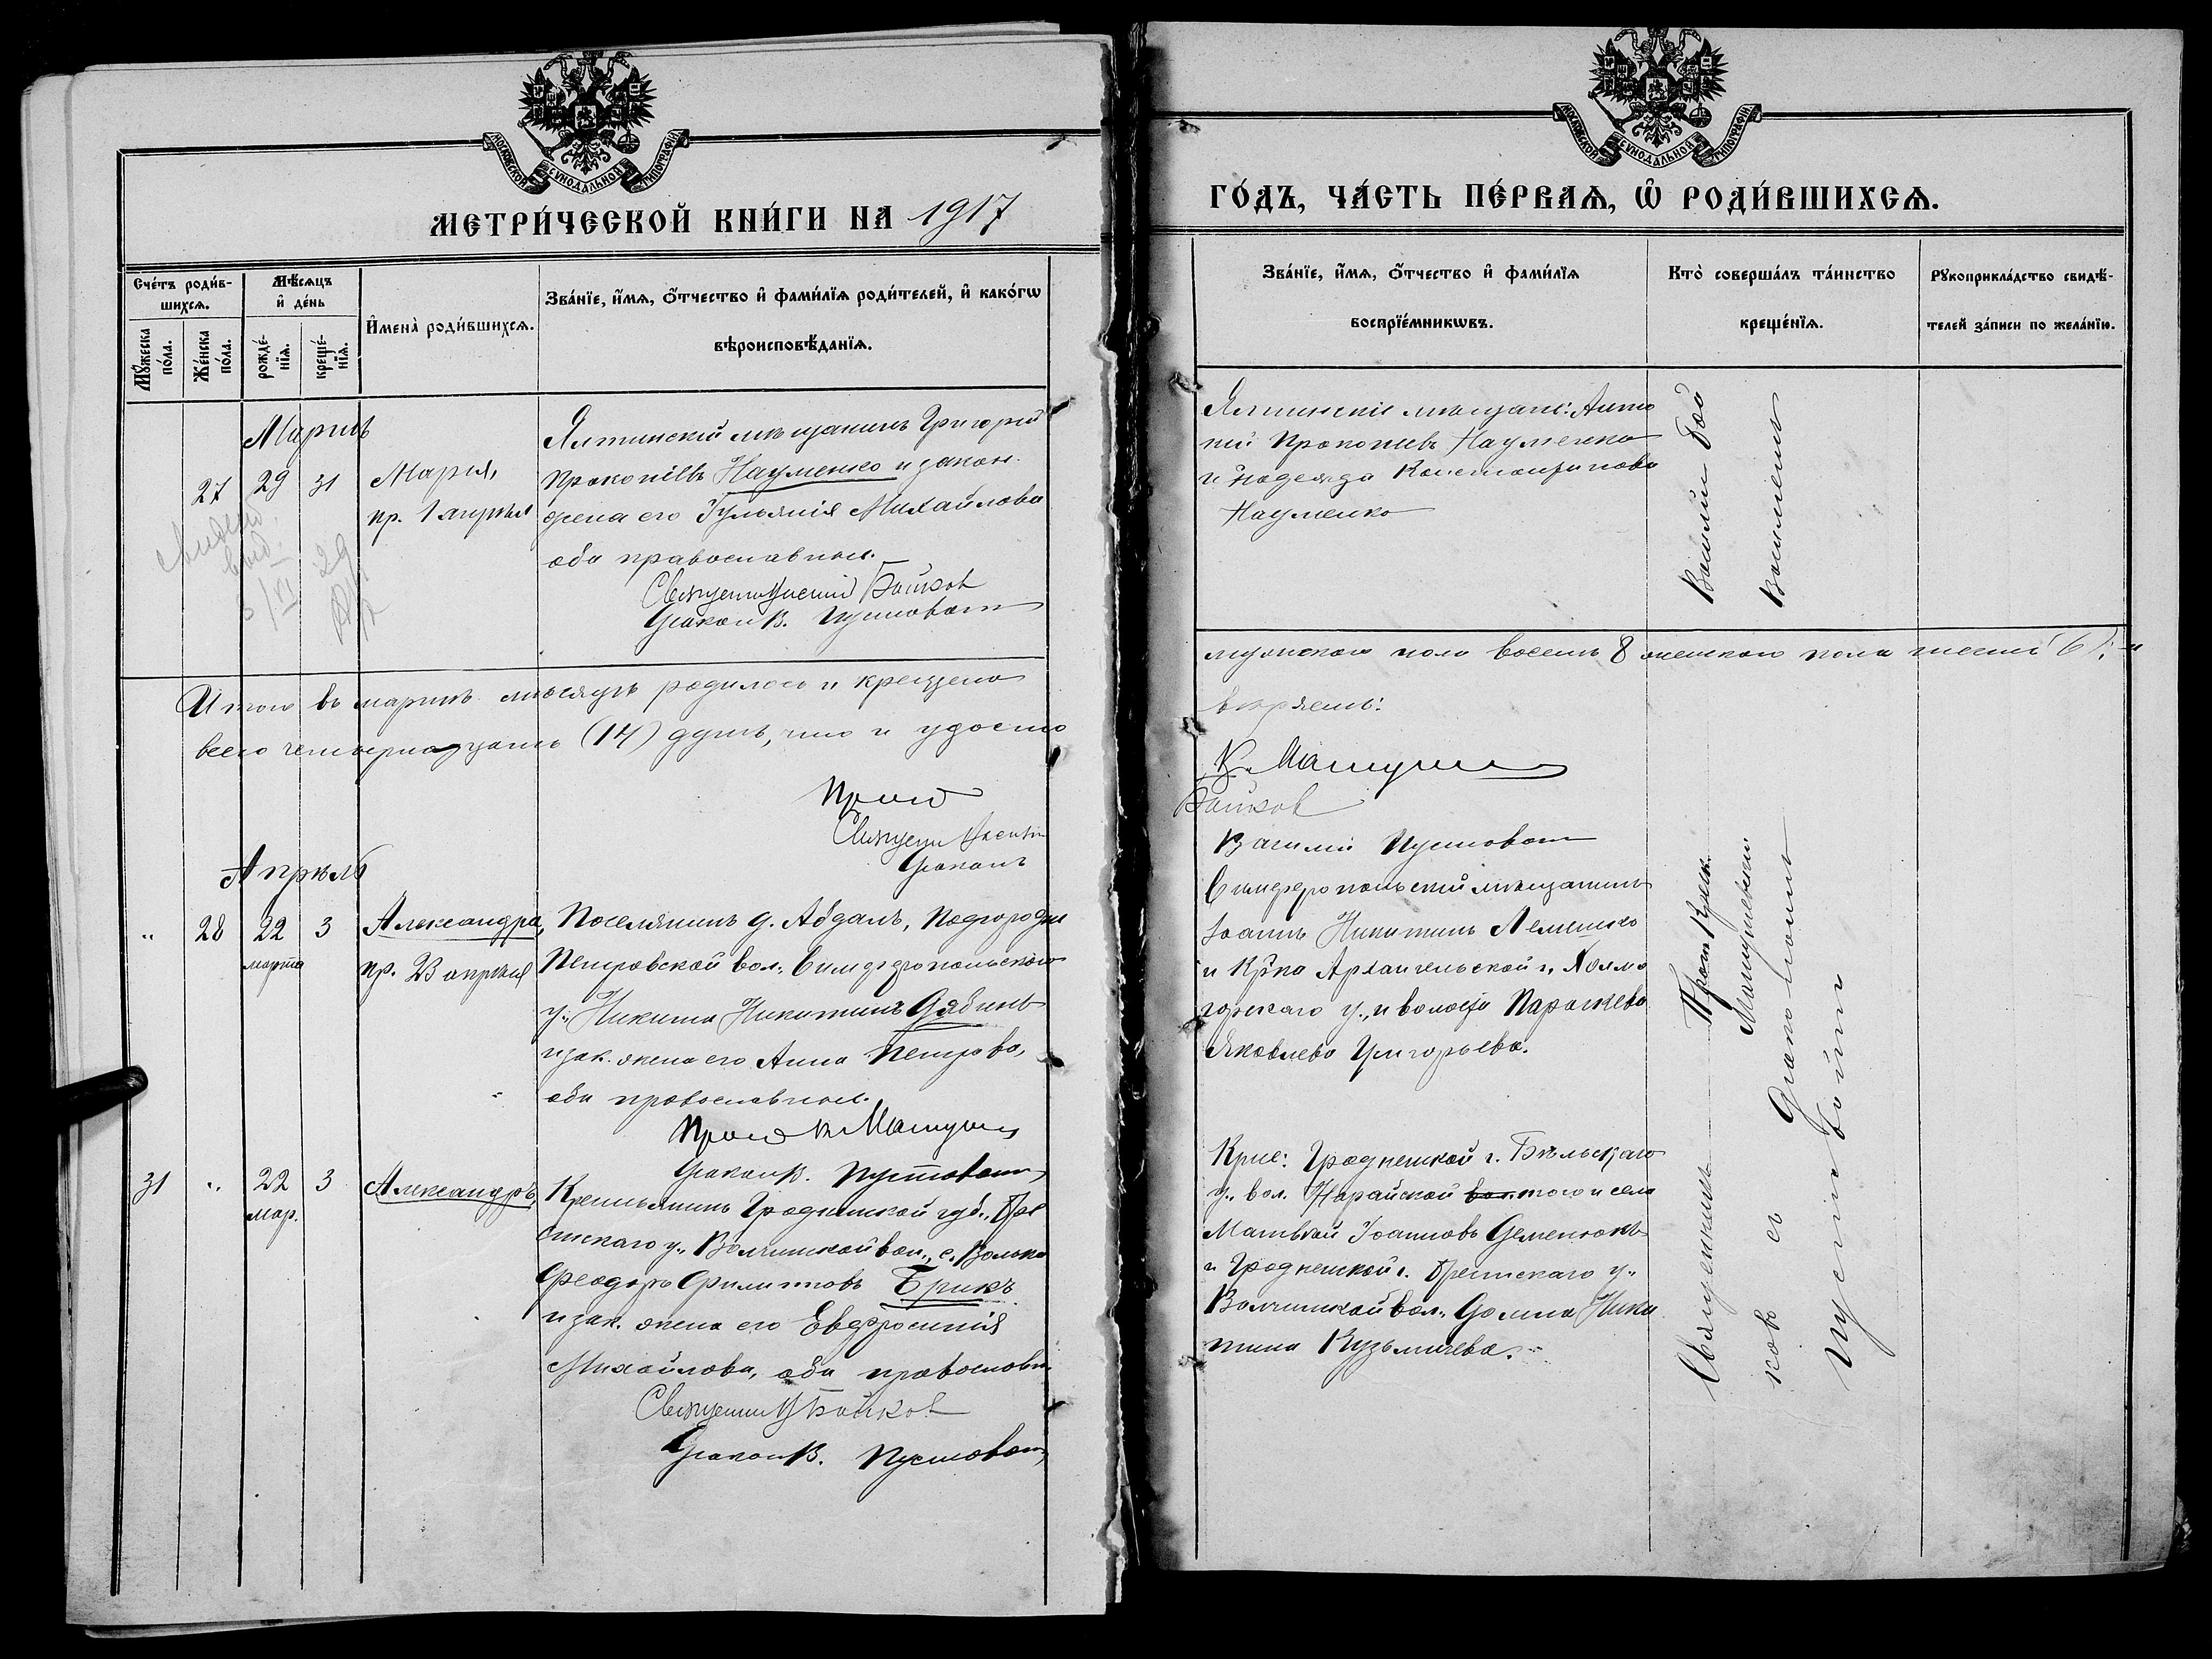 МОСКОВСКОЙ СѴНОДАЛЬНОЙ ТИПОГРАФІИ
МЕТРИ́ЧЕСКОЙ КНИ́ГИ НА 1917
Сче́тъ роди́в-
шихсѧ.
Мꙋ́жеска
по́ла.
Же́нска
по́ла.
Мѣ́сѧцъ
и҆ де́нь
рожде́-
нїѧ.
креще́-
нїѧ.
И҆мена̀ роди́вшихсѧ.
Зва́нїе, и҆́мѧ, ѻ҆́тчество и҆ фами́лїѧ роди́телей, и҆ како́гѡ
вѣроисповѣ́данїѧ.
Мартъ
27 29 31
Марія,
пр. 1 апрѣля
Ялтинскій мѣщанинъ Григорій
Прокопіевъ Науменко и закон.
жена его Іуліанія Михайлова
оба православные.
Священникъ Василій Бойков
Діаконъ В. Пустовойт
Итого въ мартѣ мѣсяцѣ родилось и крещено
всего четырнадцать (14) душъ, что и удосто
Прот
Священ Василій
Діаконъ
Апрѣль
" 28 22 3
марта
Александра,
пр. 23 апрѣля
Поселянинъ д. Абдалъ, Подгородне
Петровской вол., Симферопольскаго
у., Никита Никитинъ Дябинъ
и зак. жена его Анна Петрова,
оба православные.
Прот К. Машуке
Діаконъ В. Пустовойт
31 " 22 3
мар.
Александръ,
Крестьянинъ Гродненской губ., Бре
стскаго у., Волчинской вол., с. Волька
Феодоръ Филипповъ Брикъ
и зак. жена его Евфросинія
Михайлова, оба православн.
Священник В Бойков
Діаконъ В. Пустовойт
МОСКОВСКОЙ СѴНОДАЛЬНОЙ ТИПОГРАФІИ
ГО́ДЪ, ЧА́СТЬ ПЕ́РВАѦ, Ѽ РОДИ́ВШИХСѦ.
Зва́нїе, и҆́мѧ, ѻ҆́тчество и҆ фами́лїѧ
воспрїе́мникѡвъ.
Кто̀ соверша́лъ та́инство
креще́нїѧ.
Рꙋкоприкла́дство свидѣ́-
телей за́писи по жела́нїю.
Ялтинскіе мѣщане: Анто
ній Прокопіевъ Науменко
и Надежда Константинова
Науменко
Василій Бой
мужского пола восемь 8 женскаго пола шесть (6); и
вѣряемъ:
К. Машуке
Бойков
Василій Пустовойт
Симферопольскій мѣщанинъ
Іоаннъ Никитинъ Лемешко
и кр-ка Архангельской г. Холмо
горскаго у., и волости Параскева
Яковлева Григорьева.
Крес: Гродненской г. Бѣльскаго
у., вол. Нарайской вол. того и села
Матѳей Іоанновъ Деменюкъ
и Гродненской г. Брестскаго у.
Волчинской вол., Домна Ники
тина Кузьмичева.
Священникъ Прот
ков съ Діакономъ